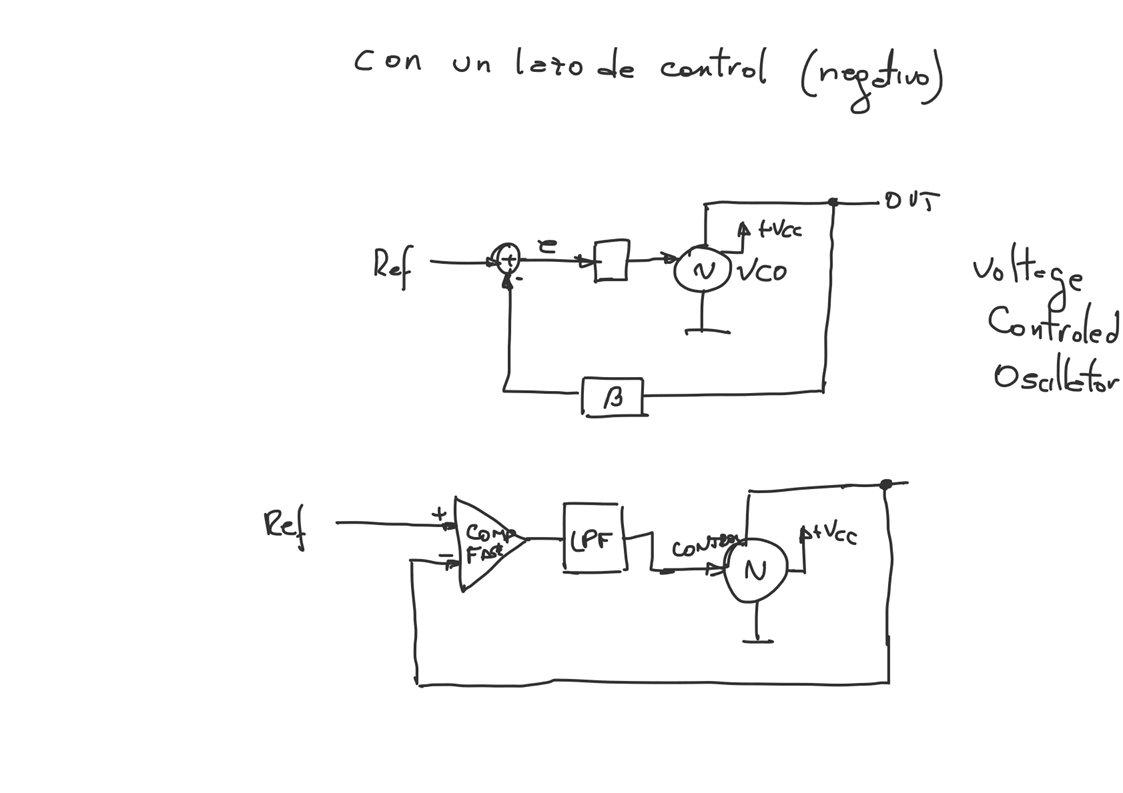 Con un lazo de control (negativo)
OUT
+Vcc
Ref + e N VCO
-
β
Voltage
Controled
Oscillator
Ref + Comp LPF CONTROL +Vcc
- FASE N